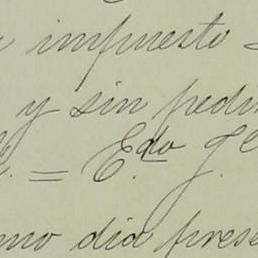 impuesto
y sin pedi
= E.do J. C
mo dia prese